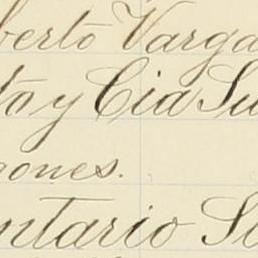 berto Varga
to y Cia Su
gones.
ntario Su